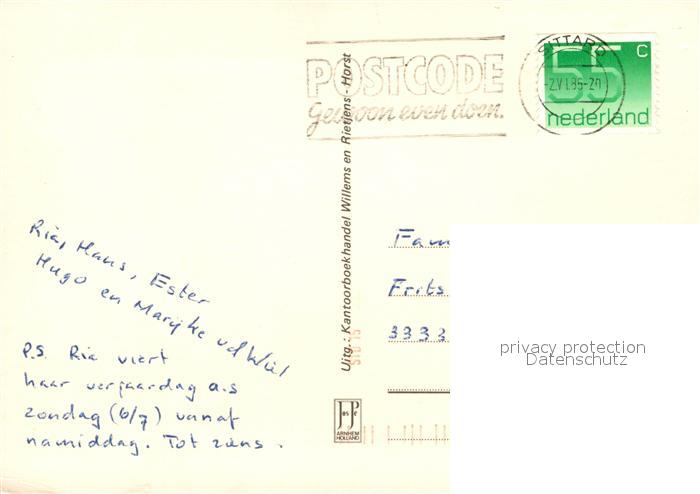 POSTCODE
Gewoon even doen.
SITTARD
-2.VII.85-20
55 C
nederland
Uitg.: Kantoorboekhandel Willems en Rietjens - Horst
Ria, Hans, Ester
Hugo en Marijke vd Wiel
P.S. Ria viert
haar verjaardag a.s
zondag (6/7) vanaf
namiddag. Tot ziens.
Fam
Frits
3333
JosPe
ARNHEM
HOLLAND
privacy protection
Datenschutz